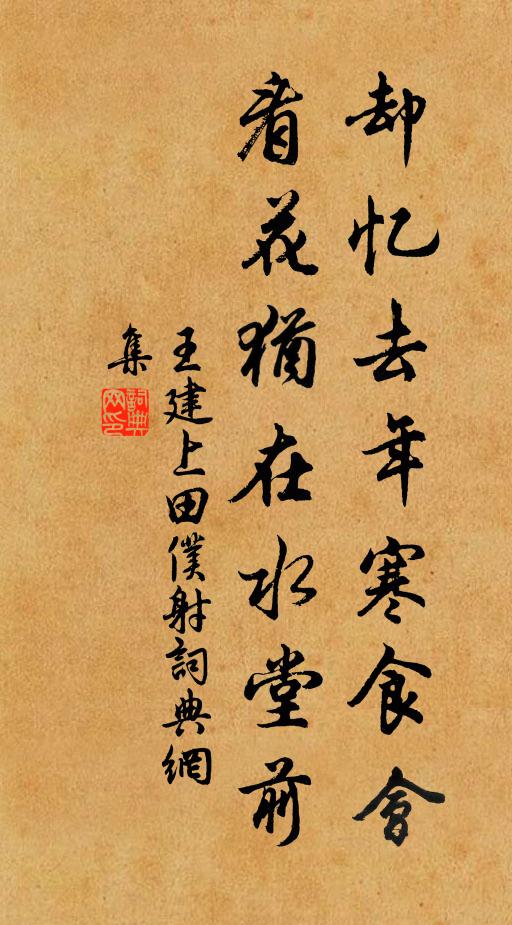 却忆去年寒食會
看花猶在水堂前
王建上田僕射詞典網
集
詞典網印